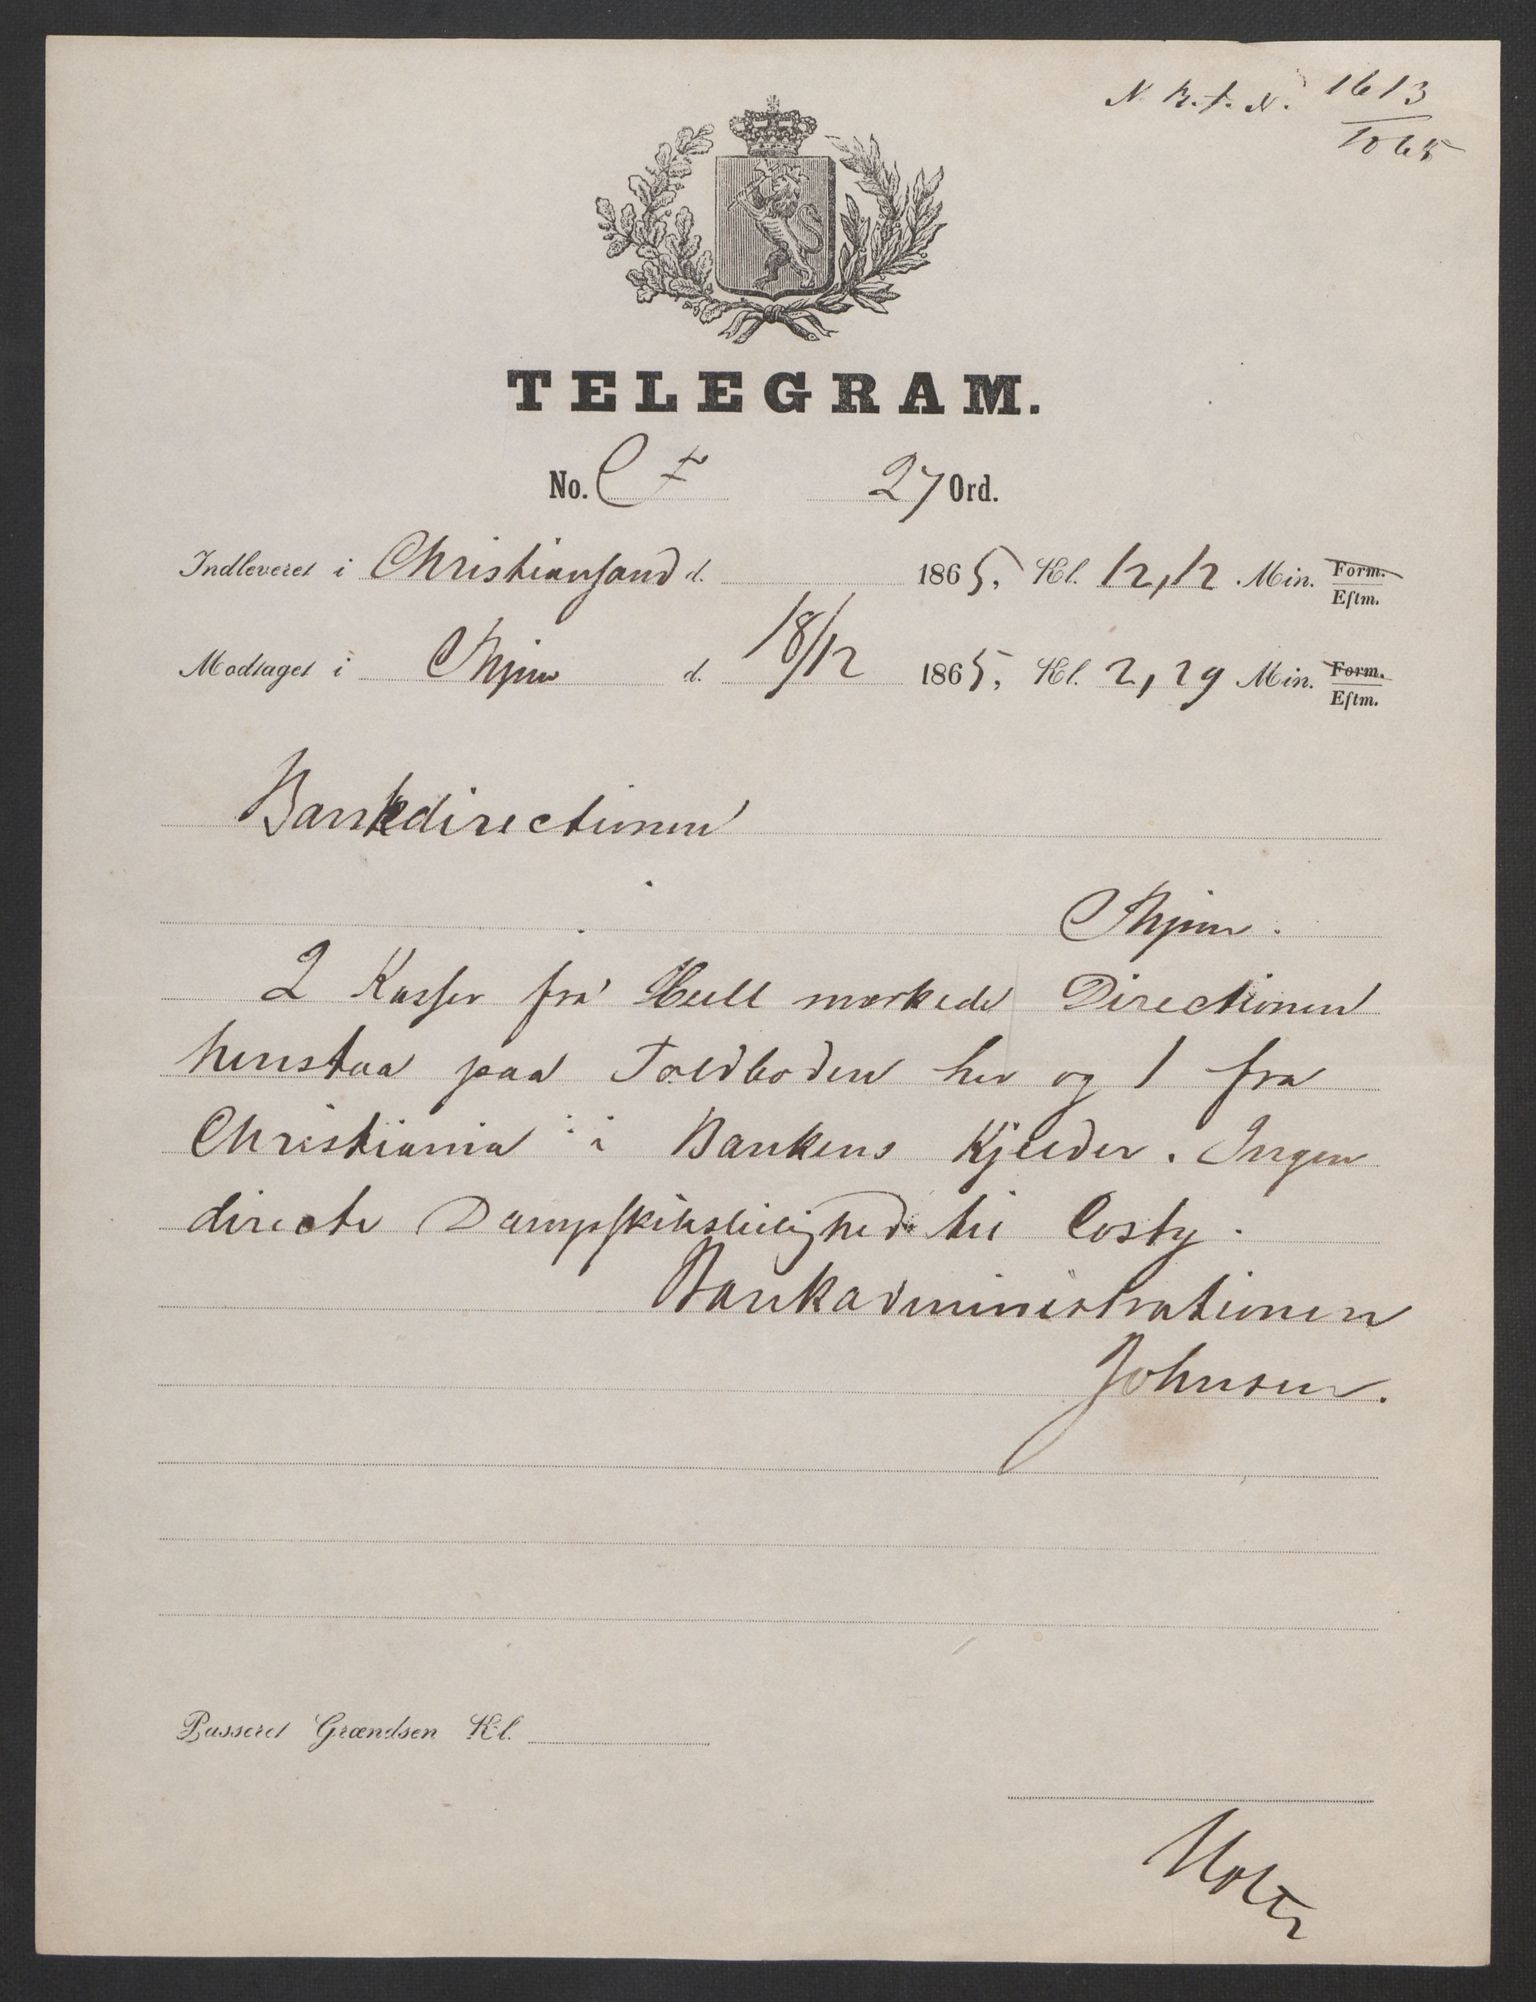 N. B. f. N. 1613
1865
TELEGRAM.
No. C F 27 Ord.
Indleveret i Christiansand d. 1865, Kl. 12,12 Min. Form. Eftm.
Modtaget i Thjem d. 18/12 1865, Kl. 2,29 Min. Form. Eftm.
Bankdirectionen
Thjem.
2 Kasser fra Hull mærkede Directionen
henstaa paa Toldboden her og 1 fra
Christiania i Bankens Kjelder. Ingen
directe Dampskibsleilighed til Costy.
Bankadministrationen
Johnsen.
Passeret Grændsen Kl.
Holtz